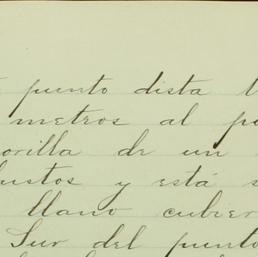 punto dista
metros al
orilla de un
ustos y está
llano cubier
Sur del punto